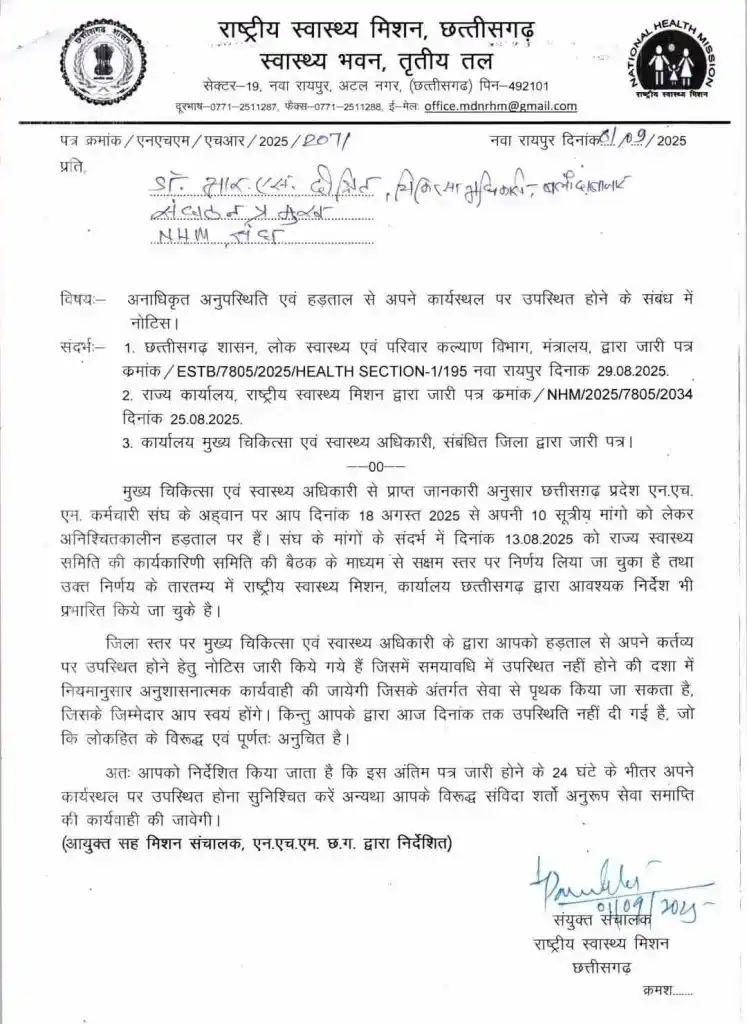 छत्तीसगढ़ शासन
राष्ट्रीय स्वास्थ्य मिशन, छत्तीसगढ़
स्वास्थ्य भवन, तृतीय तल
सेक्टर–19, नवा रायपुर, अटल नगर, (छत्तीसगढ़) पिन–492101
दूरभाष–0771–2511287, फेक्स–0771–2511288, ई–मेलः office.mdnrhm@gmail.com
NATIONAL HEALTH MISSION
राष्ट्रीय स्वास्थ्य मिशन
पत्र क्रमांक/एनएचएम/एचआर/2025/2071 नवा रायपुर दिनांक 01/09/2025
प्रति,
डॉ. आर.एस. दीक्षित, चिकित्सा अधिकारी,
NHM
विषयः– अनाधिकृत अनुपस्थिति एवं हड़ताल से अपने कार्यस्थल पर उपस्थित होने के संबंध में
नोटिस।
संदर्भः– 1. छत्तीसगढ़ शासन, लोक स्वास्थ्य एवं परिवार कल्याण विभाग, मंत्रालय, द्वारा जारी पत्र
क्रमांक/ESTB/7805/2025/HEALTH SECTION-1/195 नवा रायपुर दिनाक 29.08.2025.
2. राज्य कार्यालय, राष्ट्रीय स्वास्थ्य मिशन द्वारा जारी पत्र कमांक/NHM/2025/7805/2034
दिनांक 25.08.2025.
3. कार्यालय मुख्य चिकित्सा एवं स्वास्थ्य अधिकारी, संबंधित जिला द्वारा जारी पत्र।
––00––
मुख्य चिकित्सा एवं स्वास्थ्य अधिकारी से प्राप्त जानकारी अनुसार छत्तीसग़ढ़ प्रदेश एन.एच.
एम. कर्मचारी संघ के अह्वान पर आप दिनांक 18 अगस्त 2025 से अपनी 10 सूत्रीय मांगो को लेकर
अनिश्चितकालीन हड़ताल पर हैं। संघ के मांगों के संदर्भ में दिनांक 13.08.2025 को राज्य स्वास्थ्य
समिति की कार्यकारिणी समिति की बैठक के माध्यम से सक्षम स्तर पर निर्णय लिया जा चुका है तथा
उक्त निर्णय के तारतम्य में राष्ट्रीय स्वास्थ्य मिशन, कार्यालय छत्तीसगढ़ द्वारा आवश्यक निर्देश भी
प्रभारित किये जा चुके है।
जिला स्तर पर मुख्य चिकित्सा एवं स्वास्थ्य अधिकारी के द्वारा आपको हड़ताल से अपने कर्तव्य
पर उपस्थित होने हेतु नोटिस जारी किये गये हैं जिसमें समयावधि में उपस्थित नहीं होने की दशा में
नियमानुसार अनुशासनात्मक कार्यवाही की जायेगी जिसके अंतर्गत सेवा से पृथक किया जा सकता है,
जिसके जिम्मेदार आप स्वयं होंगे। किन्तु आपके द्वारा आज दिनांक तक उपस्थिति नहीं दी गई है, जो
कि लोकहित के विरूद्ध एवं पूर्णतः अनुचित है।
अतः आपको निर्देशित किया जाता है कि इस अंतिम पत्र जारी होने के 24 घंटे के भीतर अपने
कार्यस्थल पर उपस्थित होना सुनिश्चित करें अन्यथा आपके विरूद्ध संविदा शर्तो अनुरूप सेवा समाप्ति
की कार्यवाही की जावेगी।
(आयुक्त सह मिशन संचालक, एन.एच.एम. छ.ग. द्वारा निर्देशित)
01/09/2025
संयुक्त संचालक
राष्ट्रीय स्वास्थ्य मिशन
छत्तीसगढ़
क्रमश.......